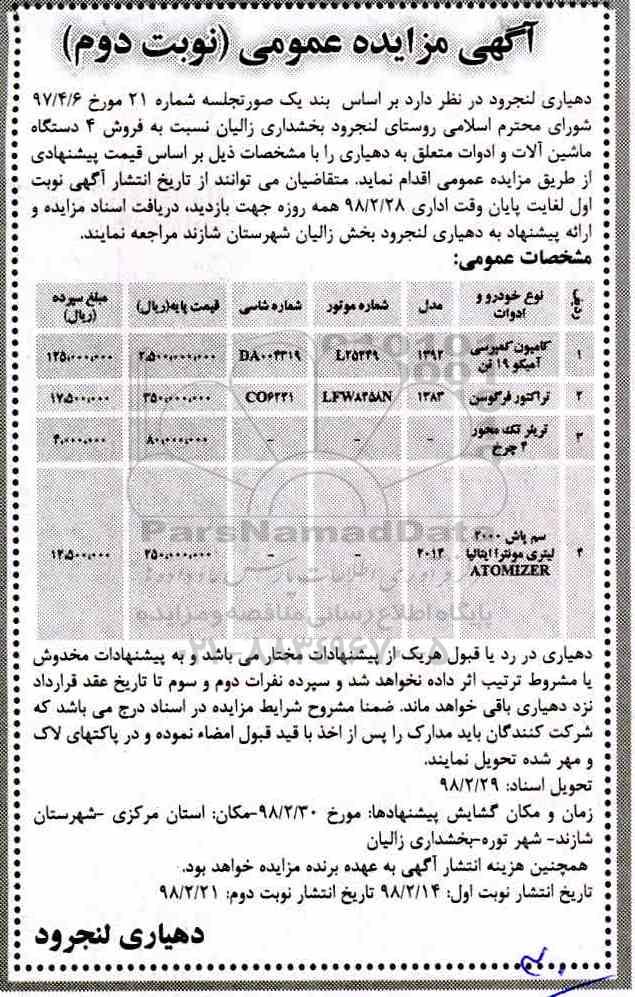 آگهی مزایده عمومی (نوبت دوم)
دهیاری لنجرود در نظر دارد بر اساس بند یک صورتجلسه شماره ۲۱ مورخ ۹۷/۴/۶
شورای محترم اسلامی روستای لنجرود بخشداری زالیان نسبت به فروش ۴ دستگاه
ماشین آلات و ادوات متعلق به دهیاری را با مشخصات ذیل بر اساس قیمت پیشنهادی
از طریق مزایده عمومی اقدام نماید. متقاضیان می توانند از تاریخ انتشار آگهی نوبت
اول لغایت پایان وقت اداری ۹۸/۲/۲۸ همه روزه جهت بازدید، دریافت اسناد مزایده و
ارائه پیشنهاد به دهیاری لنجرود بخش زالیان شهرستان شازند مراجعه نمایند.
مشخصات عمومی:
ردیف نوع خودرو و ادوات مدل شماره موتور شماره شاسی قیمت پایه(ریال) مبلغ سپرده (ریال)
۱ کامیون کمپرسی آمیکو ۱۹ تن ۱۳۹۲ L۲۵۲۴۹ DA۰۰۴۳۱۹ ۲،۵۰۰،۰۰۰،۰۰۰ ۱۲۵،۰۰۰،۰۰۰
۲ تراکتور فرگوسن ۱۳۸۳ LFW۸۲۵۸N CO۶۲۲۱ ۳۵۰،۰۰۰،۰۰۰ ۱۷،۵۰۰،۰۰۰
۳ تریلر تک محور ۴ چرخ - - - ۸۰،۰۰۰،۰۰۰ ۴،۰۰۰،۰۰۰
۴ سم پاش ۲۰۰۰ لیتری مونترا ایتالیا ATOMIZER ۲۰۱۲ - - ۲۵۰،۰۰۰،۰۰۰ ۱۲،۵۰۰،۰۰۰
ParsNamadData
پایگاه اطلاع رسانی مناقصه و مزایده
۰۲۱-۸۸۳۴۹۶۷۰-۵
دهیاری در رد یا قبول هریک از پیشنهادات مختار می باشد و به پیشنهادات مخدوش
یا مشروط ترتیب اثر داده نخواهد شد و سپرده نفرات دوم و سوم تا تاریخ عقد قرارداد
نزد دهیاری باقی خواهد ماند. ضمنا مشروح شرایط مزایده در اسناد درج می باشد که
شرکت کنندگان باید مدارک را پس از اخذ با قید قبول امضاء نموده و در پاکتهای لاک
و مهر شده تحویل نمایند.
تحویل اسناد: ۹۸/۲/۲۹
زمان و مکان گشایش پیشنهادها: مورخ ۹۸/۲/۳۰-مکان: استان مرکزی -شهرستان
شازند- شهر توره-بخشداری زالیان
همچنین هزینه انتشار آگهی به عهده برنده مزایده خواهد بود.
تاریخ انتشار نوبت اول: ۹۸/۲/۱۴ تاریخ انتشار نوبت دوم: ۹۸/۲/۲۱
دهیاری لنجرود